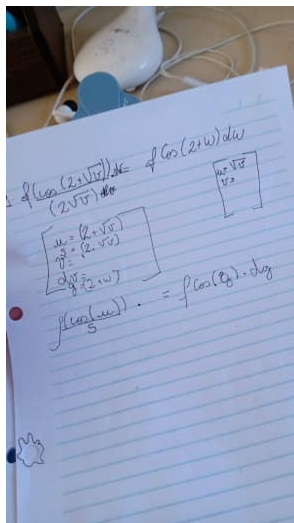 ∫(cos(2+√v)) dv = ∫ cos(2+w) dw
(2√v)
w = √v
v =
u = (2+√v)
s = (2·√v)
v =
dv =
g = (2+w)
∫(cos(u)) · = ∫ cos(g) · dg
s